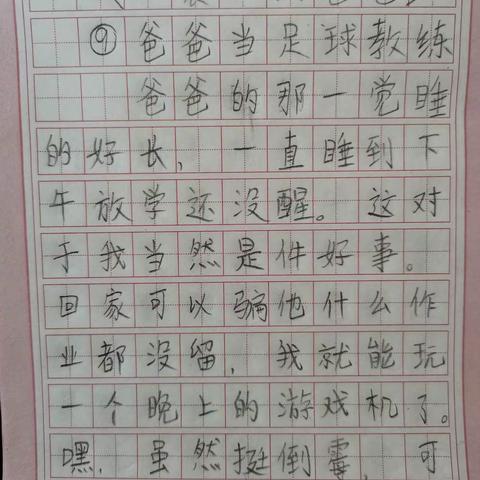 ⑨爸爸当足球教练
爸爸的那一觉睡
的好长,一直睡到下
午放学还没醒。这对
于我当然是件好事。
回家可以骗他什么作
业都没留,我就能玩
一个晚上的游戏机了。
嘿,虽然挺倒霉,可